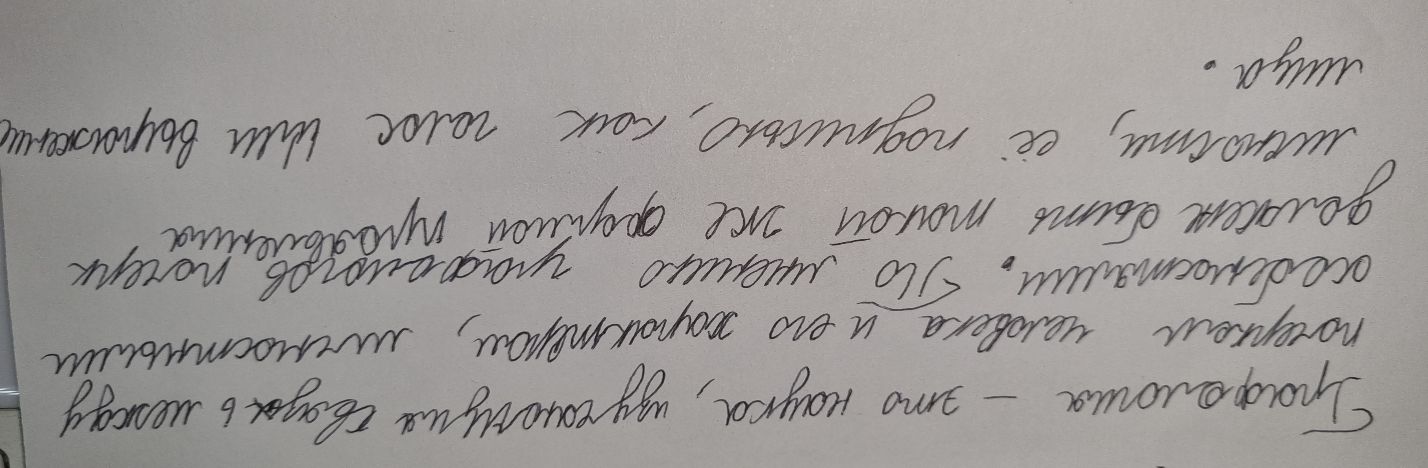 Графология – это наука, изучающая связь между
почерком человека и его характером, личностными
особенностями. По мнению графологов почерк
должен быть такой же формой проявления
личности, её подписью, как голос или выражение
лица.